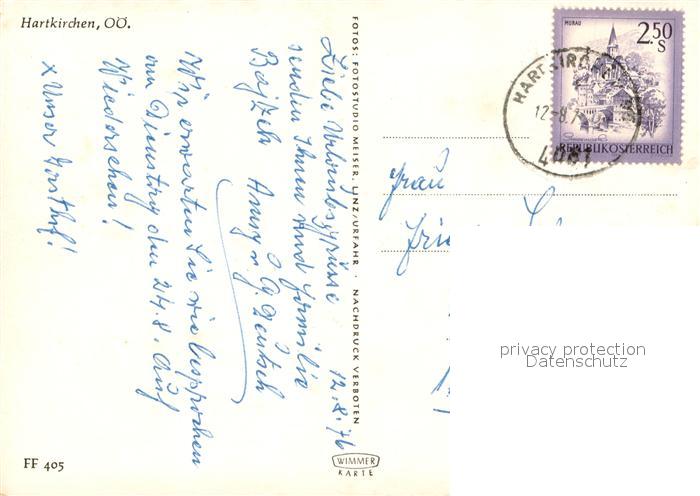 Hartkirchen, OÖ.
12.8.76
Liebe Urlaubsgrüsse
senden Ihnen und Familie
Wir erwarten Sie wie besprochen
am Dienstag den 24.8. Auf
Wiedersehen!
x Unser
FF 405
FOTOS: FOTOSTUDIO MEISER, LINZ/URFAHR · NACHDRUCK VERBOTEN
WIMMER
KARTE
MURAU
2.50
S
REPUBLIK ÖSTERREICH
12-8.7
4081
Frau
privacy protection
Datenschutz